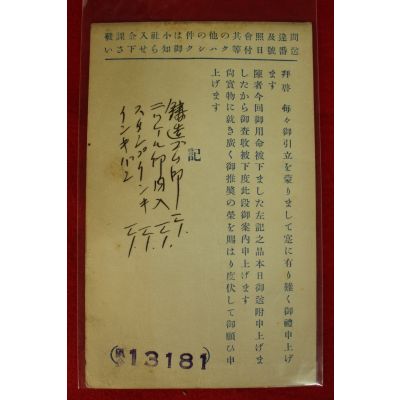 間違及照會其の他の件は小社入金課
迄番號日付等クハシク御知らせ下さい
拜啓 每々御引立を蒙りまして寔に有り難く御禮申上げ
ます
陳者今回御用命被下ました左記之品本日御送附申上げま
したから御査收被下度此段御案内申上げます
尙實物に就き廣く御推奬の榮を賜はり度伏して御願ひ申
上げます
記
鑄造ゴム印
ニッケル印肉入
スタンプインキ
インキ
13181